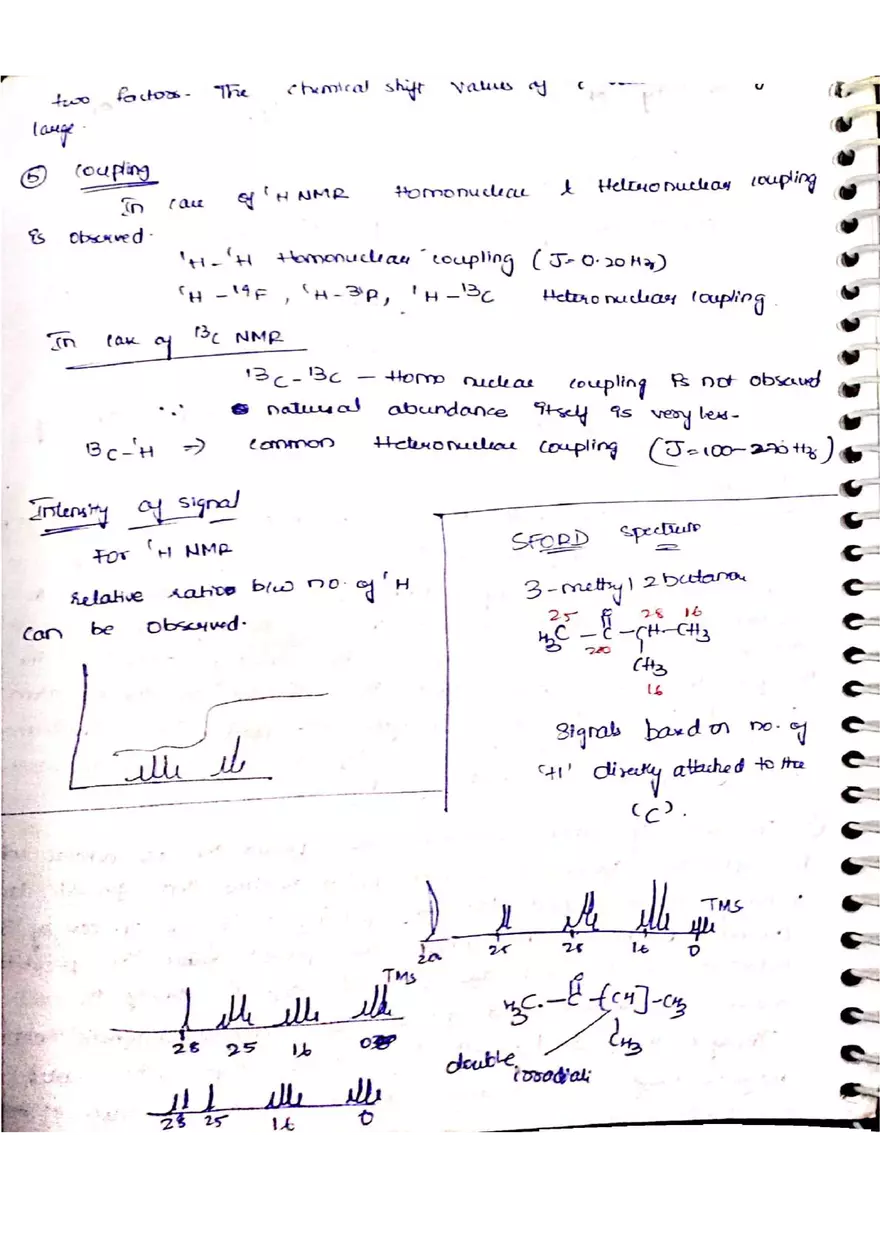 two factors. The chemical shift values of
large.
⑤ Coupling
In case of ¹H NMR Homonuclear & Heteronuclear coupling
is observed.
¹H-¹H Homonuclear coupling (J=0.20Hz)
¹H-¹⁹F, ¹H-³¹P, ¹H-¹³C Heteronuclear coupling
In case of ¹³C NMR
¹³C-¹³C - Homo nuclear coupling is not observed
∵ natural abundance itself is very less-
¹³C-¹H ⇒ common Heteronuclear coupling (J=100-270Hz)
Intensity of signal
For ¹H NMR
relative ratios b/w no. of ¹H
can be observed.
SFORD spectrum
3-methyl 2 butanone
25 O 28 16
H₃C - C - CH-CH₃
200
CH₃
16
Signals based on no. of
'H' directly attached to the
(C).
TMS
20 25 28 16 0
TMS
28 25 16 0
H₃C - C -[CH]-CH₃
CH₃
double
28 25 16 0